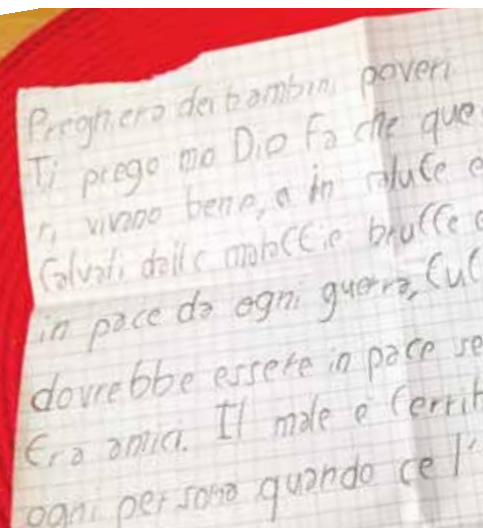 Preghiera dei bambini poveri
Ti prego mio Dio fa che que
ri vivano bene, e in salute e
salvati dalle malattie brutte e
in pace da ogni guerra, tut
dovrebbe essere in pace se
tra amici. Il male è terrib
ogni persona quando ce l'